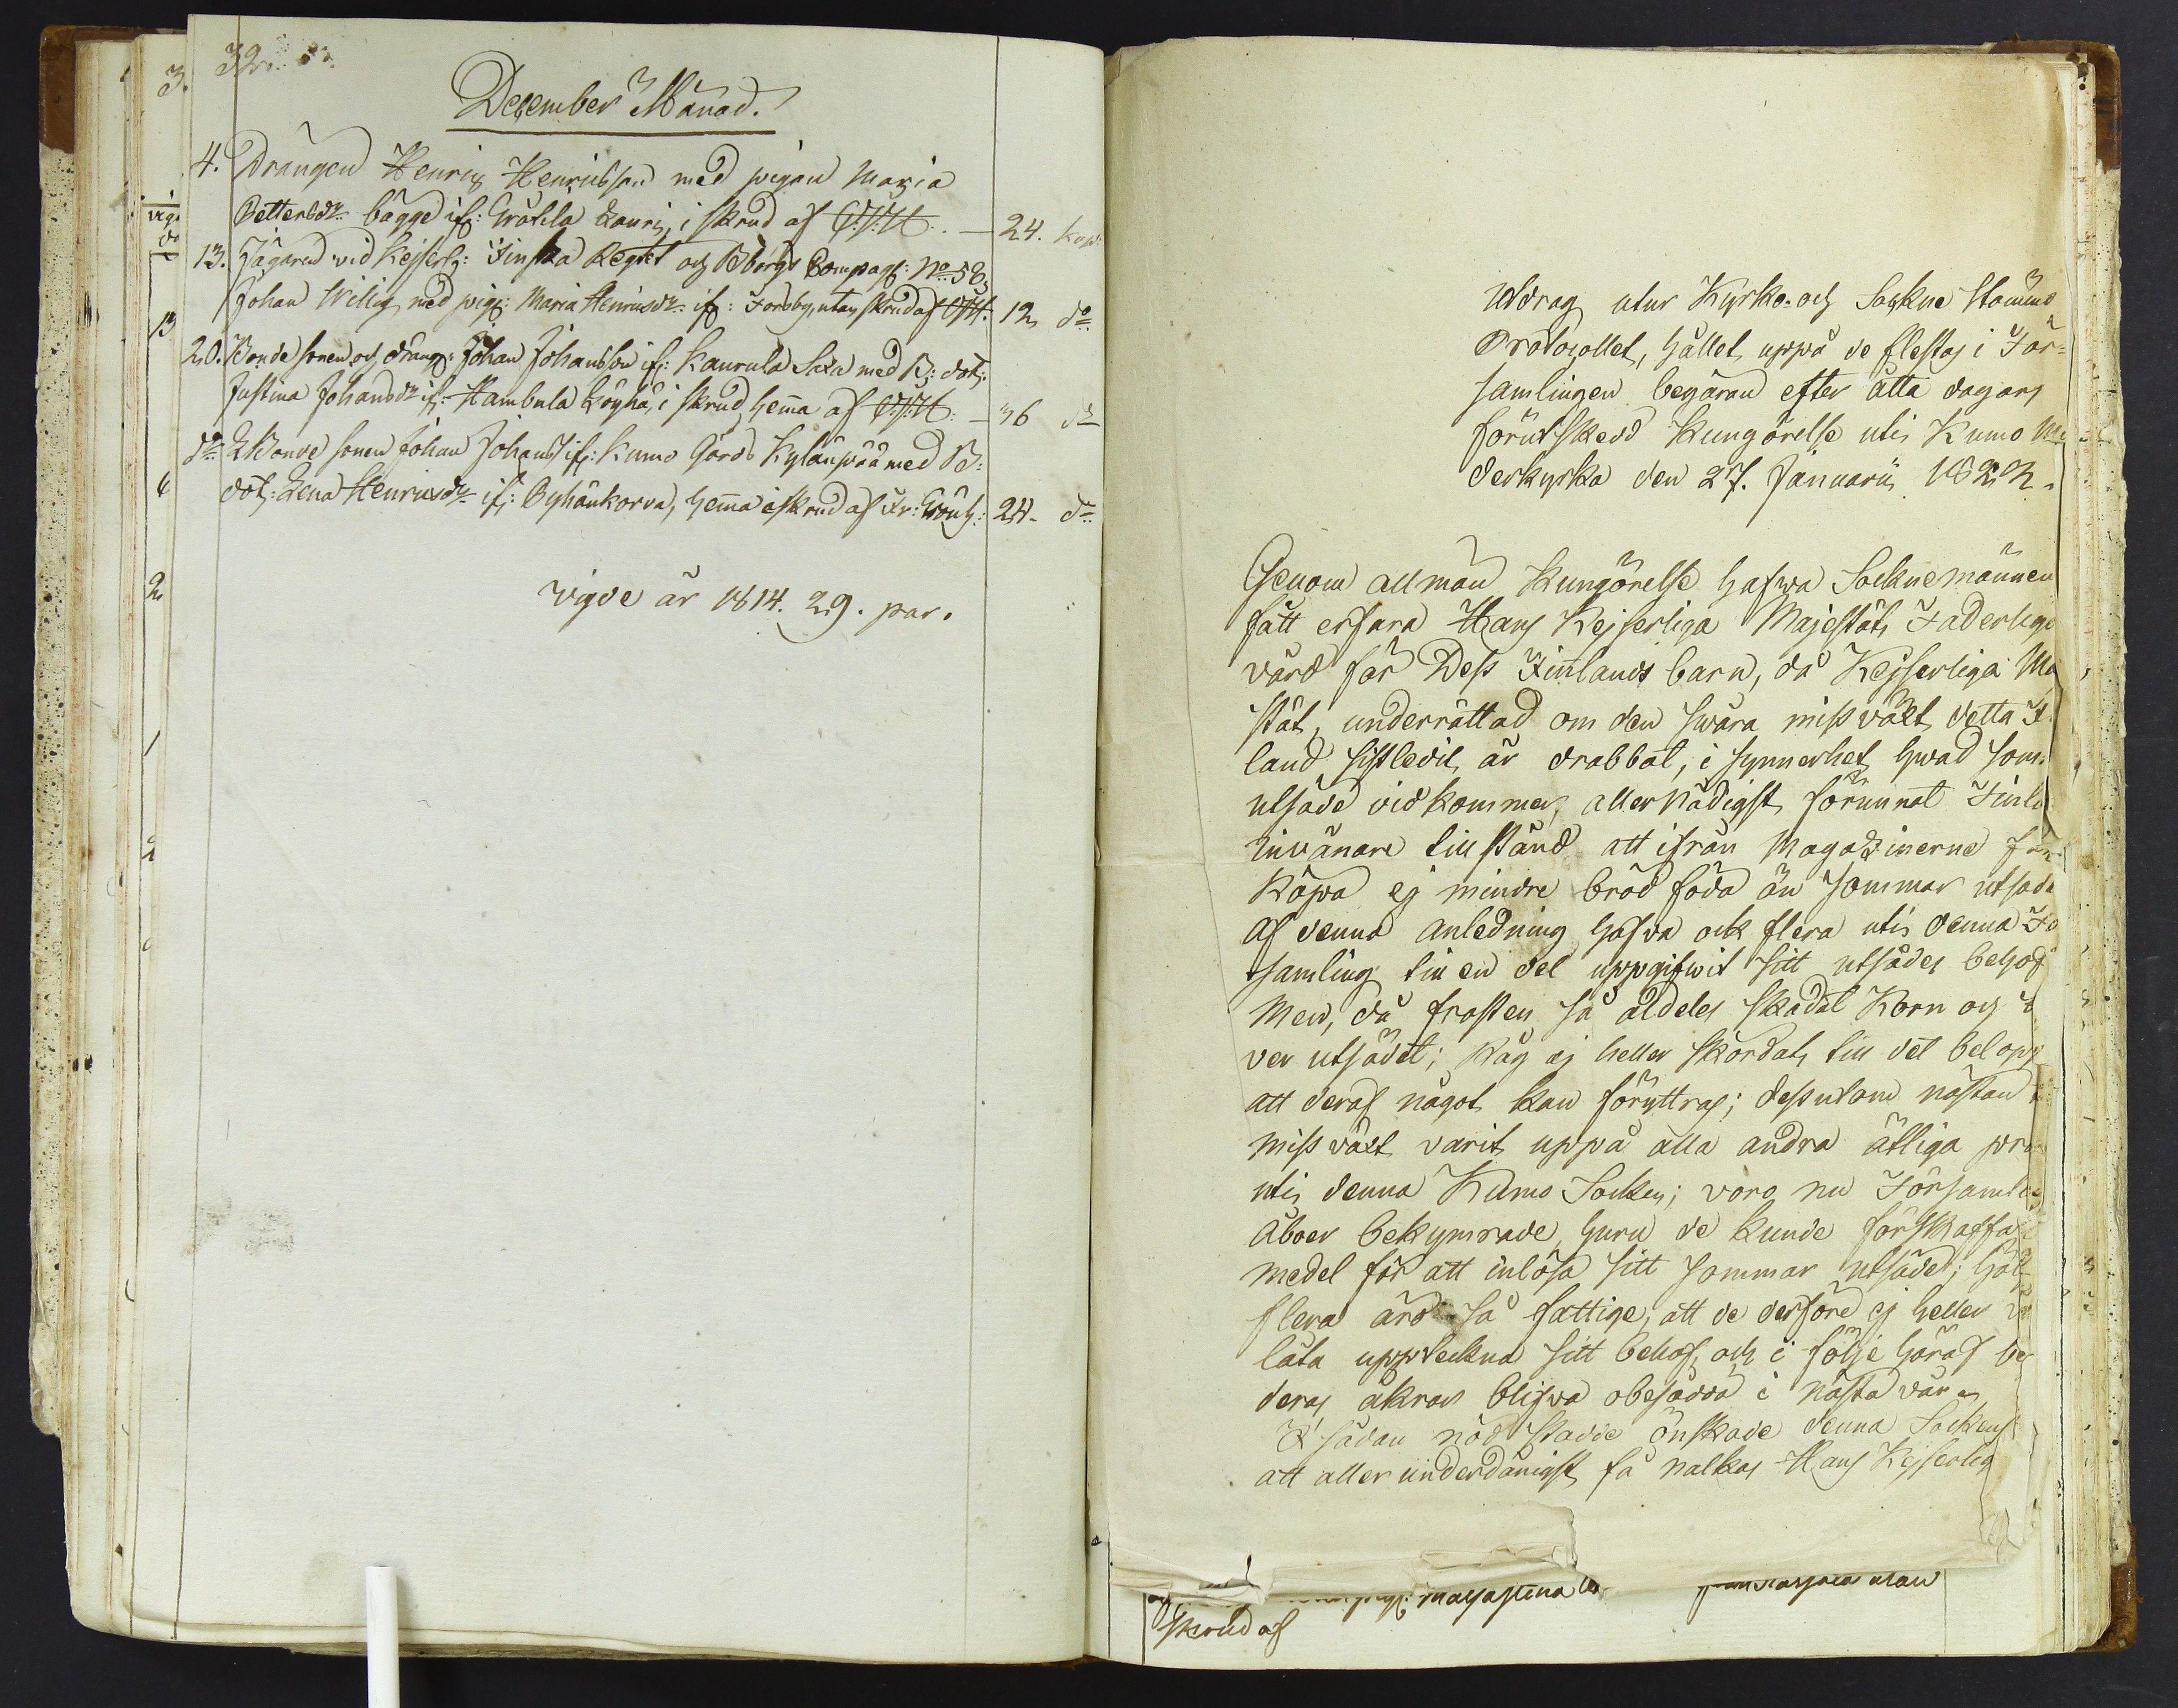 32.
December Månad.
4. Drängen Henrik Henriksson med pigan Maria
Pettersdr. bägge if: Gråtila Lauri, i skrud af C.S.H. — 24. kop:
13. Jägaren vid Kejserl: Finska Regtet och Bborgs Compagn: No 58,
Johan Wilig med pig: Maria Henricsdr. if: Forsby, utan skrud af CSH. 12 do
20. Bonde sonen och dräng: Johan Johansson if: Kaurula Saxa med B: dot:
Justina Johansdr if: Hambula Löyhä, i skrud hema af C.S.H. — 36 do
do Bonde sonen Johan Johans if: Kumo Gårds Kylänpää med B:
dot: Lena Henricsdr if: Pyhänkorva, hema i skrud af Fr: Grönh: 24 do
vigde år 1814. 29. par.
Utdrag utur Kyrko- och Sockne Stämmo
Protocollet, hållet uppå de flestas i För-
samlingen begäran efter åtta dagars
förutskedd Kungörelse uti Kumo Mo
derkyrka den 27. Januarii 1822.
Genom allmän Kungörelse hafwa Socknemännen
fått erfara Hans Kejserliga Majestäts Faderliga
vård för Dess Finlands barn, då Kejserliga Ma
stät, underrättad om den swåra missväxt detta F
land sistledit år drabbat, i synnerhet hwad som
utsäde vidkommer, allernådigst förunnat Finla
Invånare tillstånd att ifrån Magazinerne få
Köpa ej mindre brödföda än sommar utsäde
Af denna anledning hafva ock flera uti denna Fö
samling till en del uppgifwit sitt utsädes behof
Men, då frosten så aldeles skadat Korn och
ver utsädet; Råg ej heller skördats till det belopp
att deraf något kan föryttras; dessutom nästan
missväxt varit uppå alla andra ätliga pro
uti denna Kumo Socken; voro nu Församle
Åboer bekymrade, huru de kunde förskaffa
medel för att inlösa sitt sommar utsäde; häl
flera äro så fattige, att de derföre ej heller
låta uppteckna sitt behof, och i följe häraf
deras åkrar blifwa obesådda i nästa vår.
I sådan nöd stadde önskade denna Sockens
att aller underdånigst få nalkas Hans Kejserlig
Maja Stina
skrud af